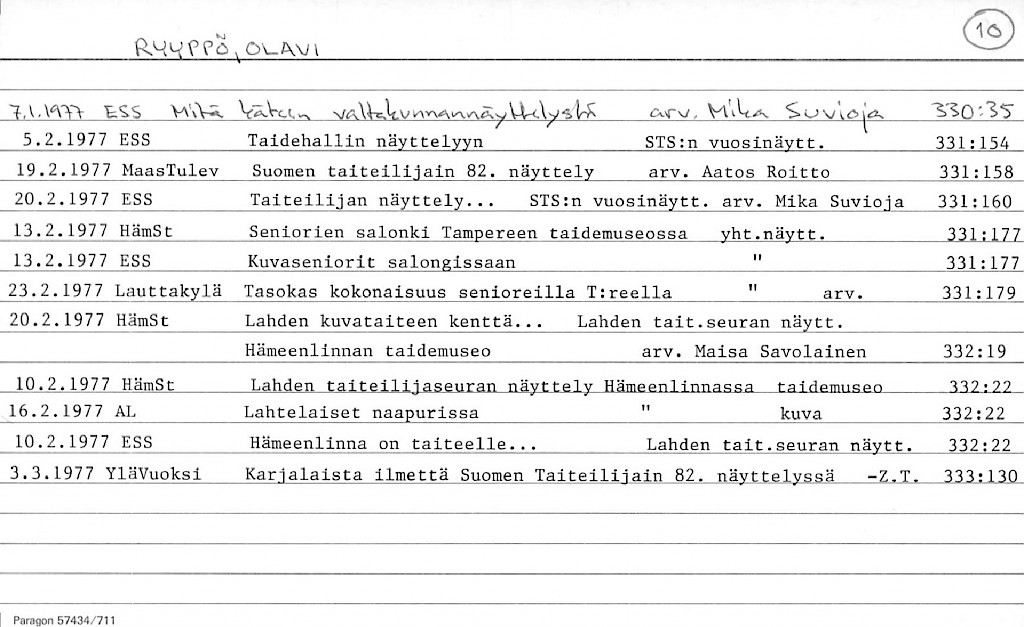 10
RYYPPÖ, OLAVI
7.1.1977 ESS Mitä käteen valtakunnannäyttelystä arv. Mika Suvioja 330:35
5.2.1977 ESS Taidehallin näyttelyyn STS:n vuosinäytt. 331:154
19.2.1977 MaasTulev Suomen taiteilijain 82. näyttely arv. Aatos Roitto 331:158
20.2.1977 ESS Taiteilijan näyttely... STS:n vuosinäytt. arv. Mika Suvioja 331:160
13.2.1977 HämSt Seniorien salonki Tampereen taidemuseossa yht.näytt. 331:177
13.2.1977 ESS Kuvaseniorit salongissaan " 331:177
23.2.1977 Lauttakylä Tasokas kokonaisuus senioreilla T:reella " arv. 331:179
20.2.1977 HämSt Lahden kuvataiteen kenttä... Lahden tait.seuran näytt.
Hämeenlinnan taidemuseo arv. Maisa Savolainen 332:19
10.2.1977 HämSt Lahden taiteilijaseuran näyttely Hämeenlinnassa taidemuseo 332:22
16.2.1977 AL Lahtelaiset naapurissa " kuva 332:22
10.2.1977 ESS Hämeenlinna on taiteelle... Lahden tait.seuran näytt. 332:22
3.3.1977 YläVuoksi Karjalaista ilmettä Suomen Taiteilijain 82. näyttelyssä -Z.T. 333:130
Paragon 57434/711